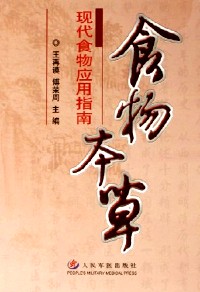 食物本草
现代食物应用指南
王再谟 傅荣周 主编
人民军医出版社
PEOPLE'S MILITARY MEDICAL PRESS